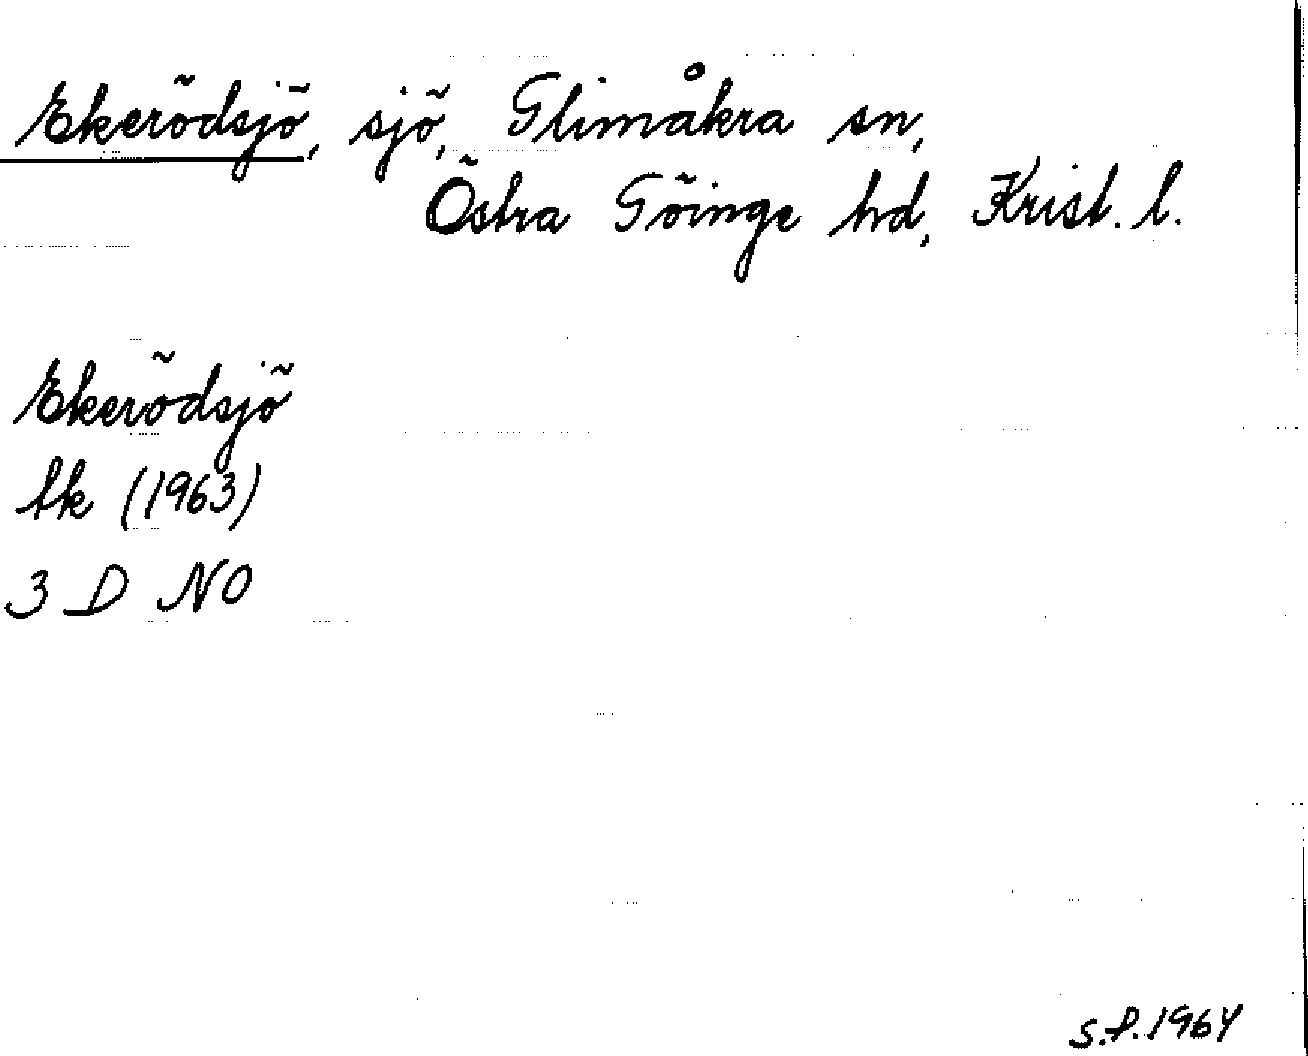 Ekerödsjö, sjö, Glimåkra sn,
Östra Göinge hd, Krist. l.
Ekerödsjö
tk (1963)
3 D NO
S.P. 1964